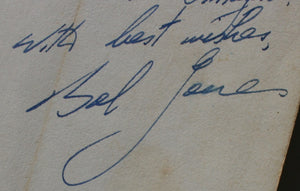 with best wishes,
Bob Jones